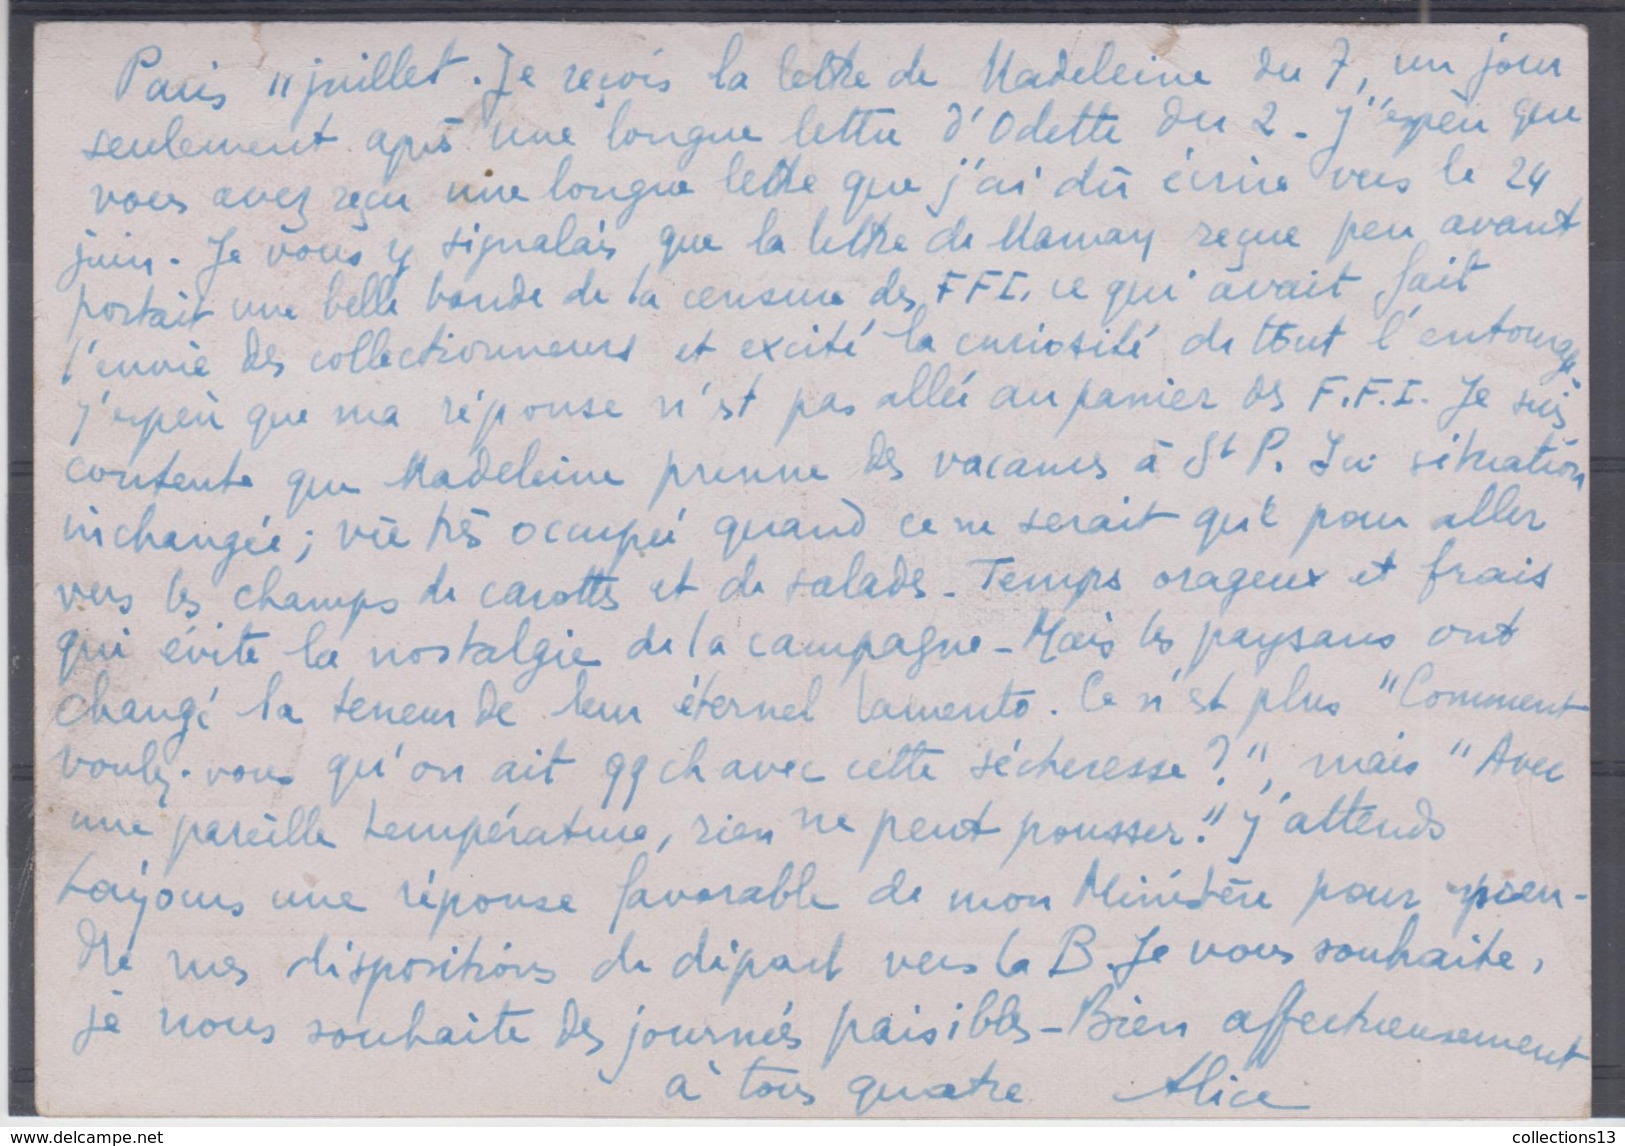 Paris 11 juillet. Je reçois la lettre de Madeleine du 7, un jour
seulement après une longue lettre d'Odette du 2 - J'espère que
vous avez reçu une longue lettre que j'ai dû écrire vers le 24
juin. Je vous y signalais que la lettre de Maman reçue peu avant
portait une belle bande de la censure des FFI, ce qui avait fait
l'envie des collectionneurs et excité la curiosité de tout l'entourage
J'espère que ma réponse n'est pas allée au panier des F.F.I. Je suis
contente que Madeleine prenne des vacances à St P. Ici situation
inchangée ; vie très occupée quand ce ne serait qu'à pour aller
vers les champs de carottes et de salades - Temps orageux et frais
qui évite la nostalgie de la campagne - Mais les paysans ont
changé la teneur de leur éternel lamento. Ce n'est plus "Comment
voulez-vous qu'on ait qq ch avec cette sécheresse ?", mais "Avec
une pareille température, rien ne peut pousser." J'attends
toujours une réponse favorable de mon Ministère pour pren-
dre mes dispositions de départ vers la B. Je vous souhaite,
je nous souhaite des journées paisibles - Bien affectueusement
à tous quatre Alice
collections13